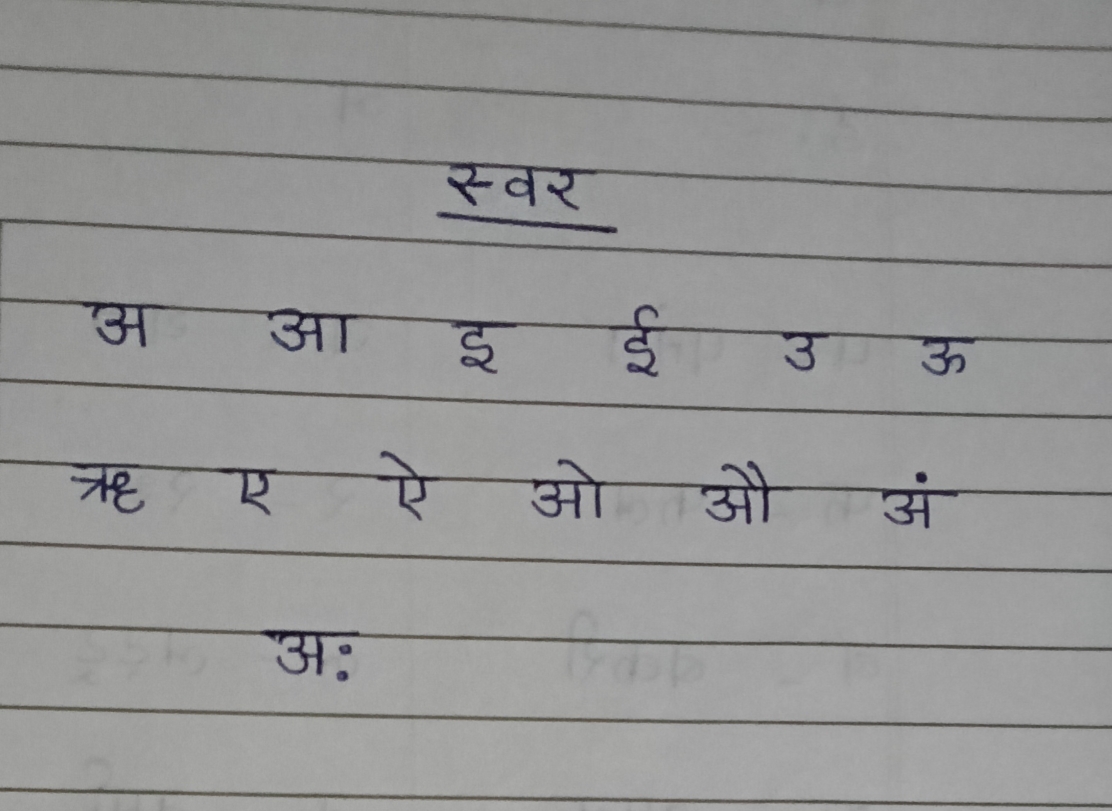 स्वर
अ आ इ ई उ ऊ
ऋ ए ऐ ओ औ अं
अः